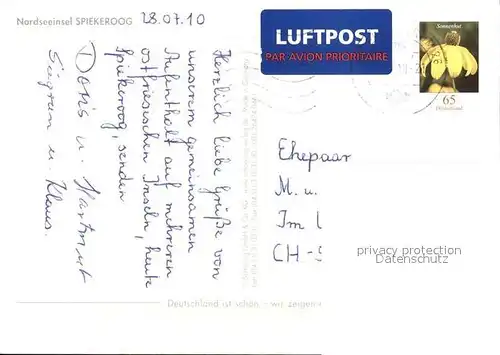 Nordseeinsel SPIEKEROOG
28.07.10
LUFTPOST
PAR AVION PRIORITAIRE
Sonnenhut
65
Deutschland
Herzlich liebe Grüße von
unserem gemeinsamen
Aufenthalt auf mehreren
ostfriesischen Inseln, heute
Spiekeroog, senden
Doris u. Hartmut
Sigrun u. Klaus.
Ehepaar
M. u.
Im
CH-
privacy protection
Datenschutz
Deutschland ist schön - wir zeigen